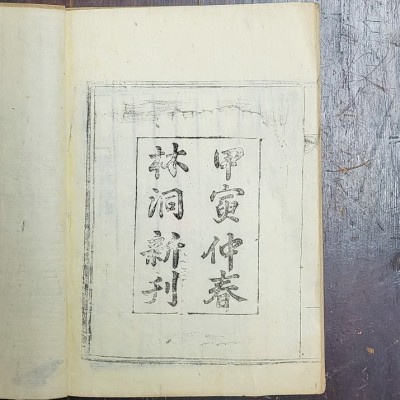 甲寅仲春
林洞新刊